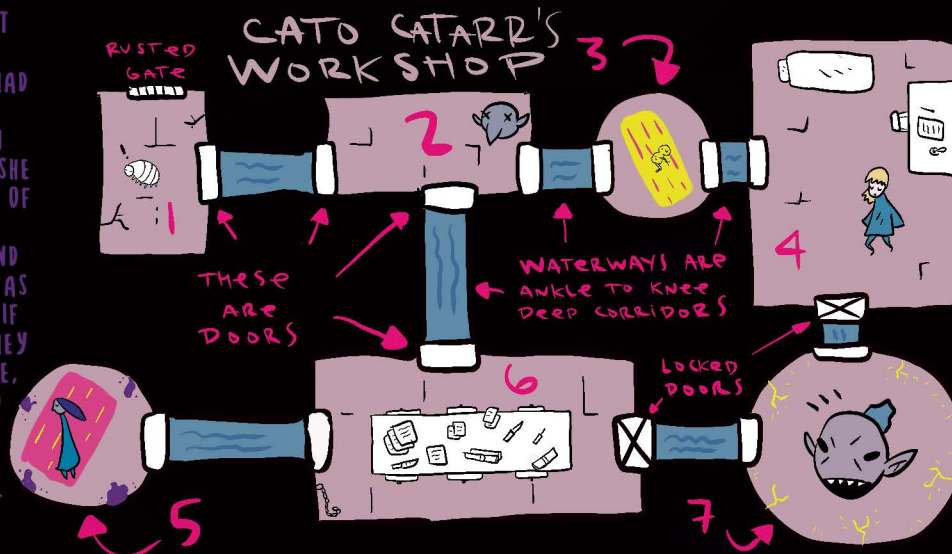 T
HAD
SHE
OF
ND
AS
IF
HEY
E,
CATO CATARR'S
WORKSHOP
RUSTED
GATE
3
2
!
1
4
THESE
ARE
DOORS
WATERWAYS ARE
ANKLE TO KNEE
DEEP CORRIDORS
6
LOCKED
DOORS
5
7